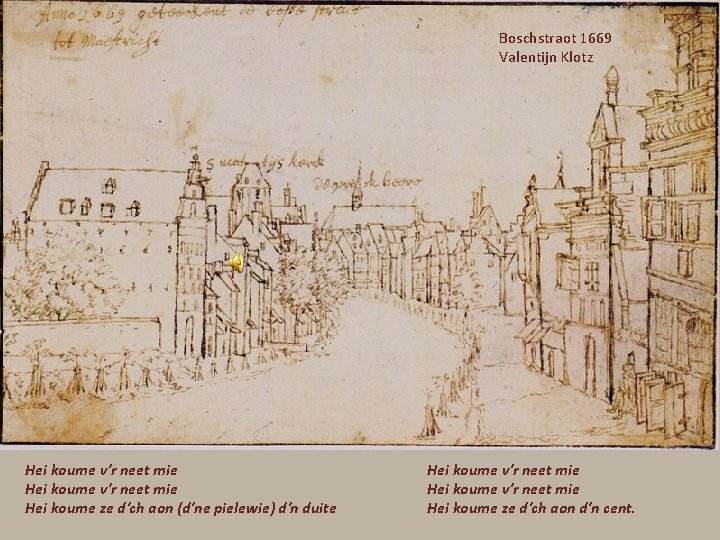 Anno 1669 geteeckent de bosse straet
tot Maestricht
Boschstraot 1669
Valentijn Klotz
s mat tijs kerck
Hei koume v'r neet mie
Hei koume v'r neet mie
Hei koume ze d'ch aon (d'ne pielewie) d'n duite
Hei koume v'r neet mie
Hei koume v'r neet mie
Hei koume ze d'ch aon d'n cent.